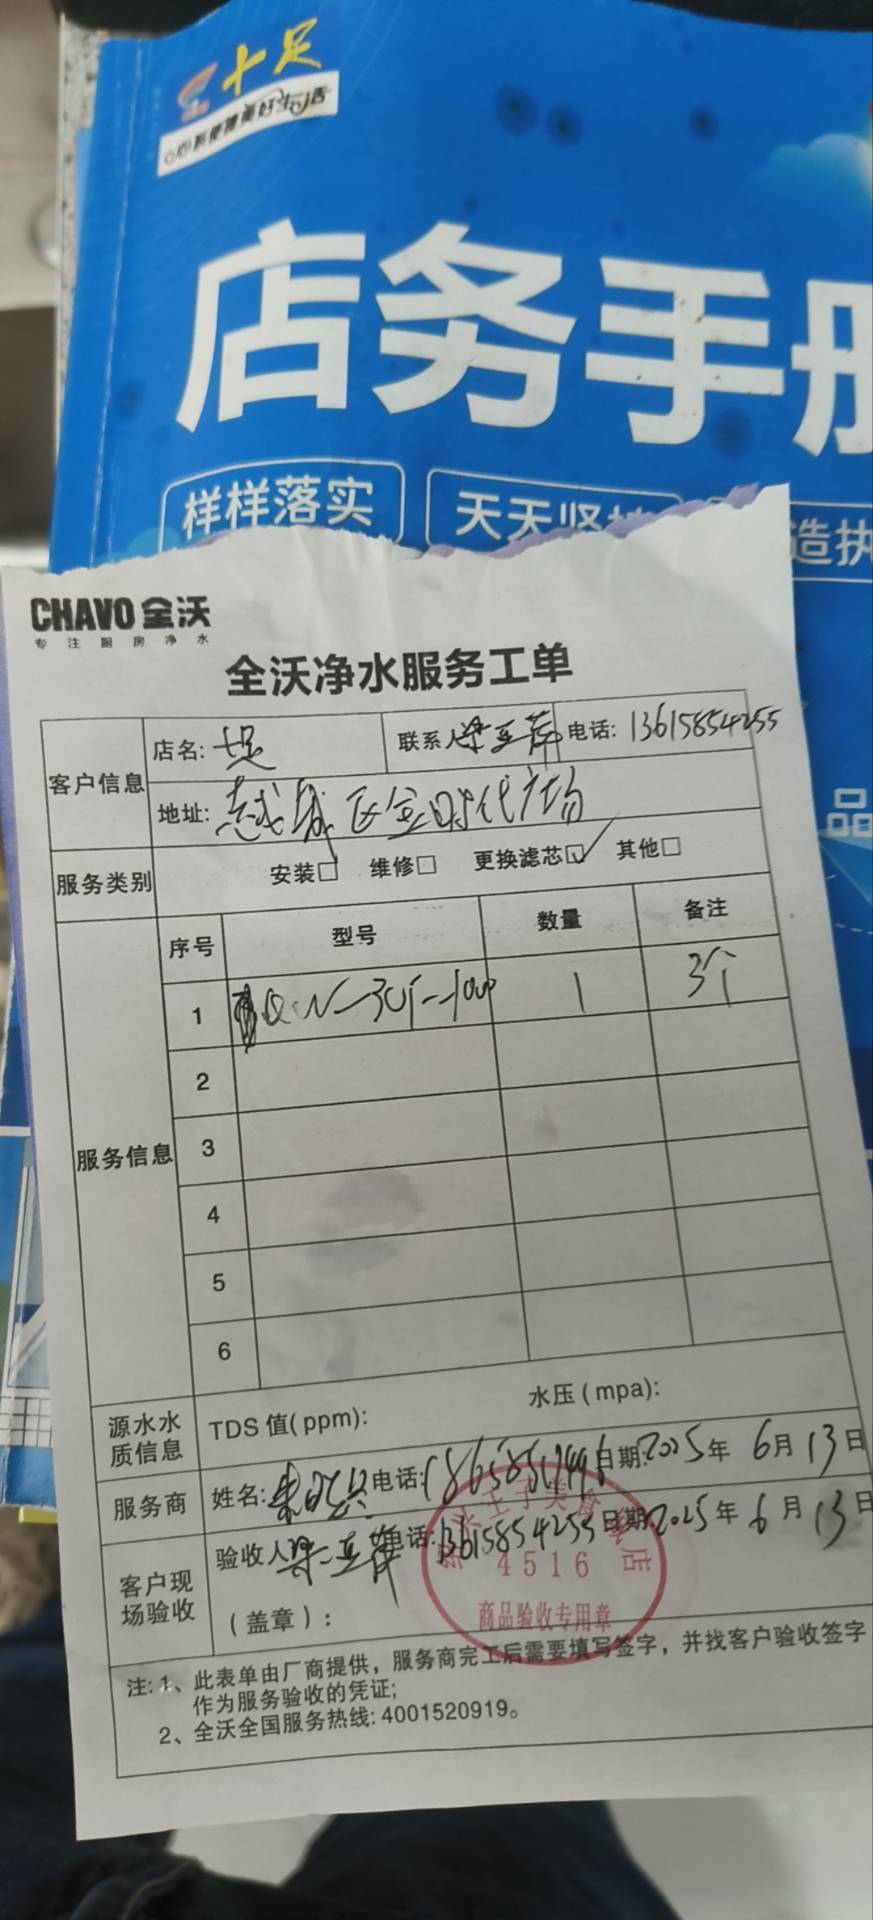 十足
心系便捷美好生活
店务手册
样样落实
天天坚持
造执
品
CHAVO 全沃
专注厨房净水
全沃净水服务工单
客户信息
店名: 十足 联系 梁亚萍 电话: 13615854255
地址: 越城区金时代广场
服务类别
安装□ 维修□ 更换滤芯☑ 其他□
服务信息
序号 型号 数量 备注
1 QW-3UF-1000 1 3个
2
3
4
5
6
源水水质信息
TDS 值(ppm): 水压(mpa):
服务商
姓名: 电话: 日期: 2025年 6月 13日
客户现场验收
验收人 梁亚萍 电话: 13615854255 日期 2025年 6月 13日
(盖章):
王子美食
店
4516
商品验收专用章
注: 1、此表单由厂商提供，服务商完工后需要填写签字，并找客户验收签字
作为服务验收的凭证;
2、全沃全国服务热线: 4001520919。